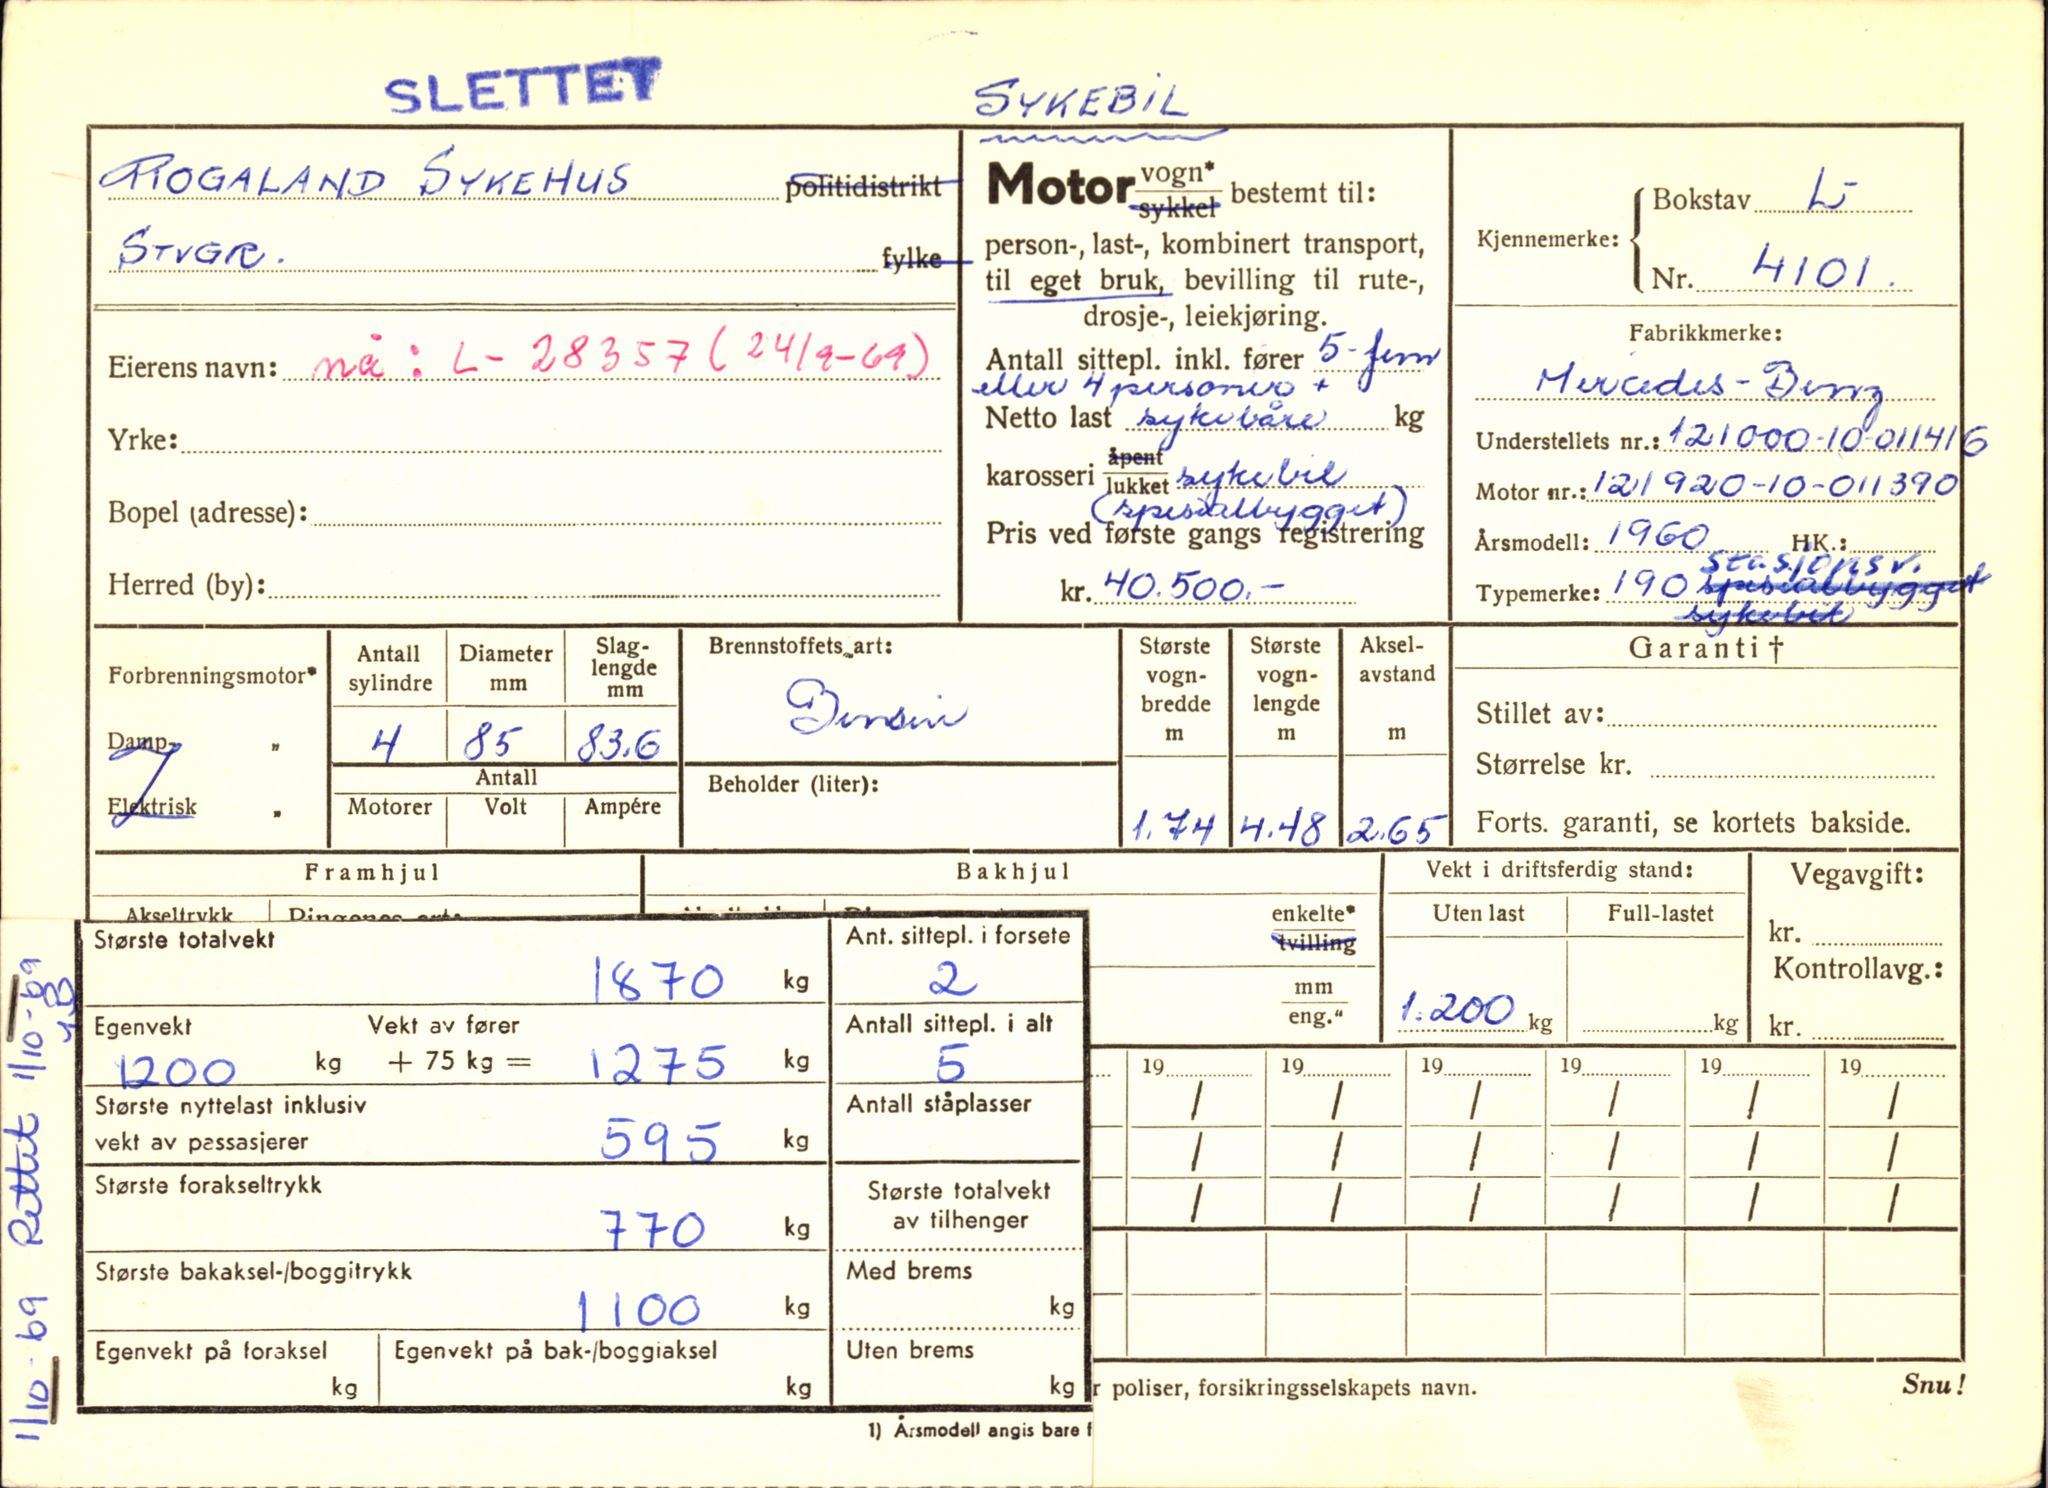 SLETTET
SYKEBIL
ROGALAND SYKEHUS politidistrikt
STVGR. fylke
Eierens navn: nå: L- 28357 (24/9-69)
Yrke:
Bopel (adresse):
Herred (by):
Motor vogn* sykkel bestemt til:
person-, last-, kombinert transport,
til eget bruk, bevilling til rute-,
drosje-, leiekjøring.
Antall sittepl. inkl. fører 5-fem
eller 4 personer +
Netto last sykebåre kg
karosseri åpent lukket sykebil
(spesialbygget)
Pris ved første gangs registrering
kr. 40.500.-
Kjennemerke: Bokstav L-
Nr. 4101.
Fabrikkmerke:
Mercedes-Benz
Understellets nr.: 121000-10-011416
Motor nr.: 121920-10-011390
Årsmodell: 1960 HK.:
stasjonsv.
Typemerke: 190 spesialbygget
sykebil
Forbrenningsmotor*
Damp- "
Elektrisk "
Antall sylindre
4
Diameter mm
85
Slag-lengde mm
83.6
Antall
Motorer Volt Ampére
Brennstoffets art:
Bensin
Beholder (liter):
Største vogn-bredde m
1.74
Største vogn-lengde m
4.48
Aksel-avstand m
2.65
Garanti †
Stillet av:
Størrelse kr.
Forts. garanti, se kortets bakside.
Framhjul
Bakhjul
Akseltrykk
enkelte*
tvilling
mm
eng."
Vekt i driftsferdig stand:
Uten last Full-lastet
1.200 kg kg
Vegavgift:
kr.
Kontrollavg.:
kr.
19 19 19 19 19 19
/ / / / / /
/ / / / / /
/ / / / / /
Største totalvekt
1870 kg
Egenvekt Vekt av fører
1200 kg + 75 kg = 1275 kg
Største nyttelast inklusiv
vekt av passasjerer 595 kg
Største forakseltrykk
770 kg
Største bakaksel-/boggitrykk
1100 kg
Egenvekt på foraksel
kg
Egenvekt på bak-/boggiaksel
kg
Ant. sittepl. i forsete
2
Antall sittepl. i alt
5
Antall ståplasser
Største totalvekt
av tilhenger
Med brems
kg
Uten brems
kg
1) Årsmodell angis bare f
r poliser, forsikringsselskapets navn.
Snu!
1/10-69 Rettet 1/10-69